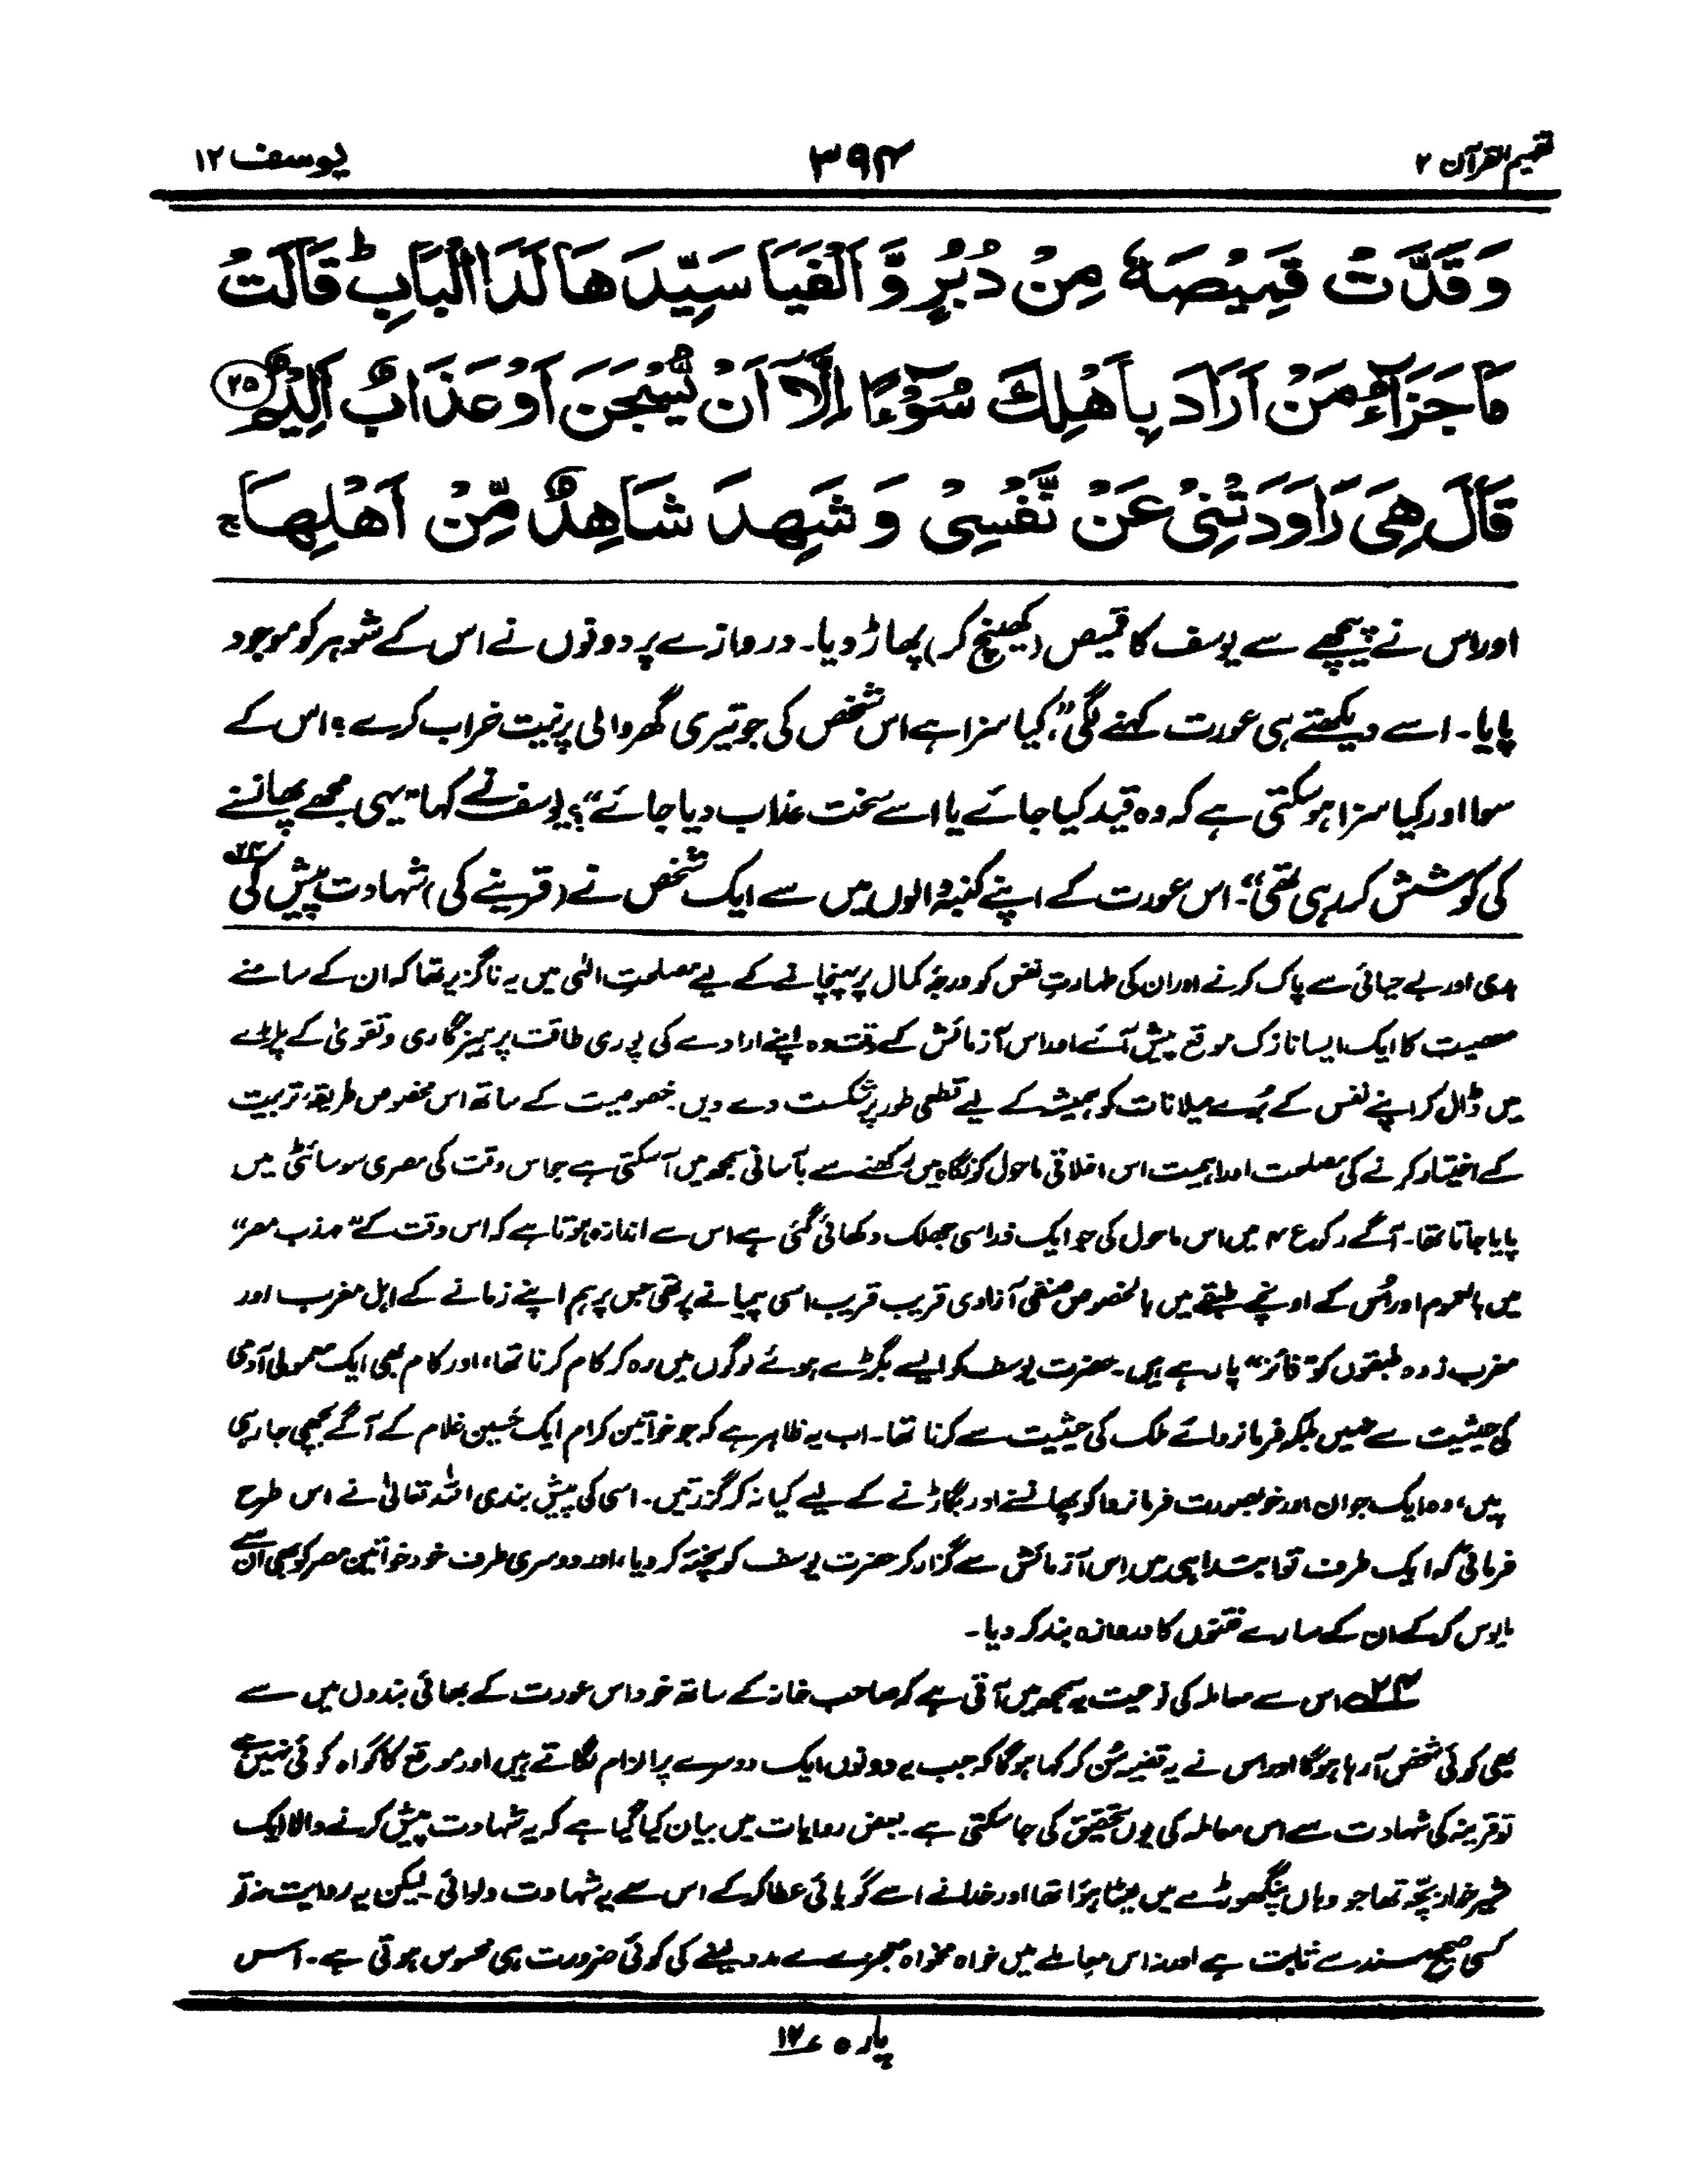 تفہیم القرآن ۲
۳۹۴
یوسف ۱۲
وَقَدَّتْ قَمِيْصَهٗ مِنْ دُبُرٍ وَّ اَلْفَيَا سَيِّدَهَا لَدَا الْبَابِ ؕ قَالَتْ
مَا جَزَآءُ مَنْ اَرَادَ بِاَهْلِكَ سُوْٓءًا اِلَّآ اَنْ يُّسْجَنَ اَوْ عَذَابٌ اَلِيْمٌ ۲۵
قَالَ هِيَ رَاوَدَتْنِيْ عَنْ نَّفْسِيْ وَ شَهِدَ شَاهِدٌ مِّنْ اَهْلِهَا ۚ
اور اس نے پیچھے سے یوسف کا قمیص (کھینچ کر) پھاڑ دیا۔ دروازے پر دونوں نے اس کے شوہر کو موجود
پایا۔ اسے دیکھتے ہی عورت کہنے لگی، ”کیا سزا ہے اس شخص کی جو تیری گھر والی پر نیت خراب کرے؟ اس کے
سوا اور کیا سزا ہو سکتی ہے کہ وہ قید کیا جائے یا اسے سخت عذاب دیا جائے“؟ یوسف نے کہا ”یہی مجھے پھانسنے
کی کوشش کر رہی تھی“۔ اس عورت کے اپنے کنبہ والوں میں سے ایک شخص نے (قرینے کی) شہادت پیش کی ۲۴؎
بدی اور بے حیائی سے پاک کرنے اور ان کی طہارتِ نفس کو درجۂ کمال پر پہنچانے کے لیے مصلحتِ الٰہی میں یہ ناگزیر تھا کہ ان کے سامنے
معصیت کا ایک ایسا نازک موقع پیش آئے اور اس آزمائش کے وقت وہ اپنے ارادے کی پوری طاقت پرہیزگاری و تقویٰ کے پلڑے
میں ڈال کر اپنے نفس کے بُرے میلانات کو ہمیشہ کے لیے قطعی طور پر شکست دے دیں۔ خصوصیت کے ساتھ اس مخصوص طریقۂ تربیت
کے اختیار کرنے کی مصلحت اور اہمیت اس اخلاقی ماحول کو نگاہ میں رکھنے سے بآسانی سمجھ میں آ سکتی ہے جو اس وقت کی مصری سوسائٹی میں
پایا جاتا تھا۔ آگے رکوع ۴ میں اس ماحول کی جو ایک ذرا سی جھلک دکھائی گئی ہے اس سے اندازہ ہوتا ہے کہ اس وقت کے ”مہذب مصر“
میں بالعموم اور اُس کے اونچے طبقے میں بالخصوص صنفی آزادی قریب قریب اسی پیمانے پر تھی جس پر ہم اپنے زمانے کے اہل مغرب اور
مغرب زدہ طبقوں کو ”فائز“ پا رہے ہیں۔ حضرت یوسف کو ایسے بگڑے ہوئے لوگوں میں رہ کر کام کرنا تھا، اور کام بھی ایک معمولی آدمی
کی حیثیت سے نہیں بلکہ فرمانروائے ملک کی حیثیت سے کرنا تھا۔ اب یہ ظاہر ہے کہ جو خواتین کرام ایک حُسین غلام کے آگے بچھی جا رہی
ہیں، وہ ایک جوان اور خوبصورت فرمانروا کو پھانسنے اور بگاڑنے کے لیے کیا نہ کر گزرتیں۔ اسی کی پیش بندی اللہ تعالیٰ نے اس طرح
فرمائی کہ ایک طرف تو ابتدا ہی میں اِس آزمائش سے گزار کر حضرت یوسف کو پختہ کر دیا، اور دوسری طرف خود خواتین مصر کو بھی اُن سے
مایوس کر کے ان کے سارے فتنوں کا دروازہ بند کر دیا۔
۲۴؎ اس سے معاملہ کی نوعیت یہ سمجھ میں آتی ہے کہ صاحب خانہ کے ساتھ خود اس عورت کے بھائی بندوں میں سے
بھی کوئی شخص آ رہا ہوگا اور اس نے یہ قضیہ سُن کر کہا ہوگا کہ جب یہ دونوں ایک دوسرے پر الزام لگاتے ہیں اور موقع کا گواہ کوئی نہیں ہے
تو قرینہ کی شہادت سے اس معاملہ کی یوں تحقیق کی جا سکتی ہے۔ بعض روایات میں بیان کیا گیا ہے کہ یہ شہادت پیش کرنے والا ایک
شیرخوار بچّہ تھا جو وہاں پنگھوڑے میں لیٹا ہوا تھا اور خدا نے اسے گویائی عطا کر کے اس سے یہ شہادت دلوائی۔ لیکن یہ روایت نہ تو
کسی صحیح سند سے ثابت ہے اور نہ اس معاملے میں خواہ مخواہ معجزے سے مدد لینے کی کوئی ضرورت ہی محسوس ہوتی ہے۔ اس
پارہ ۱۲